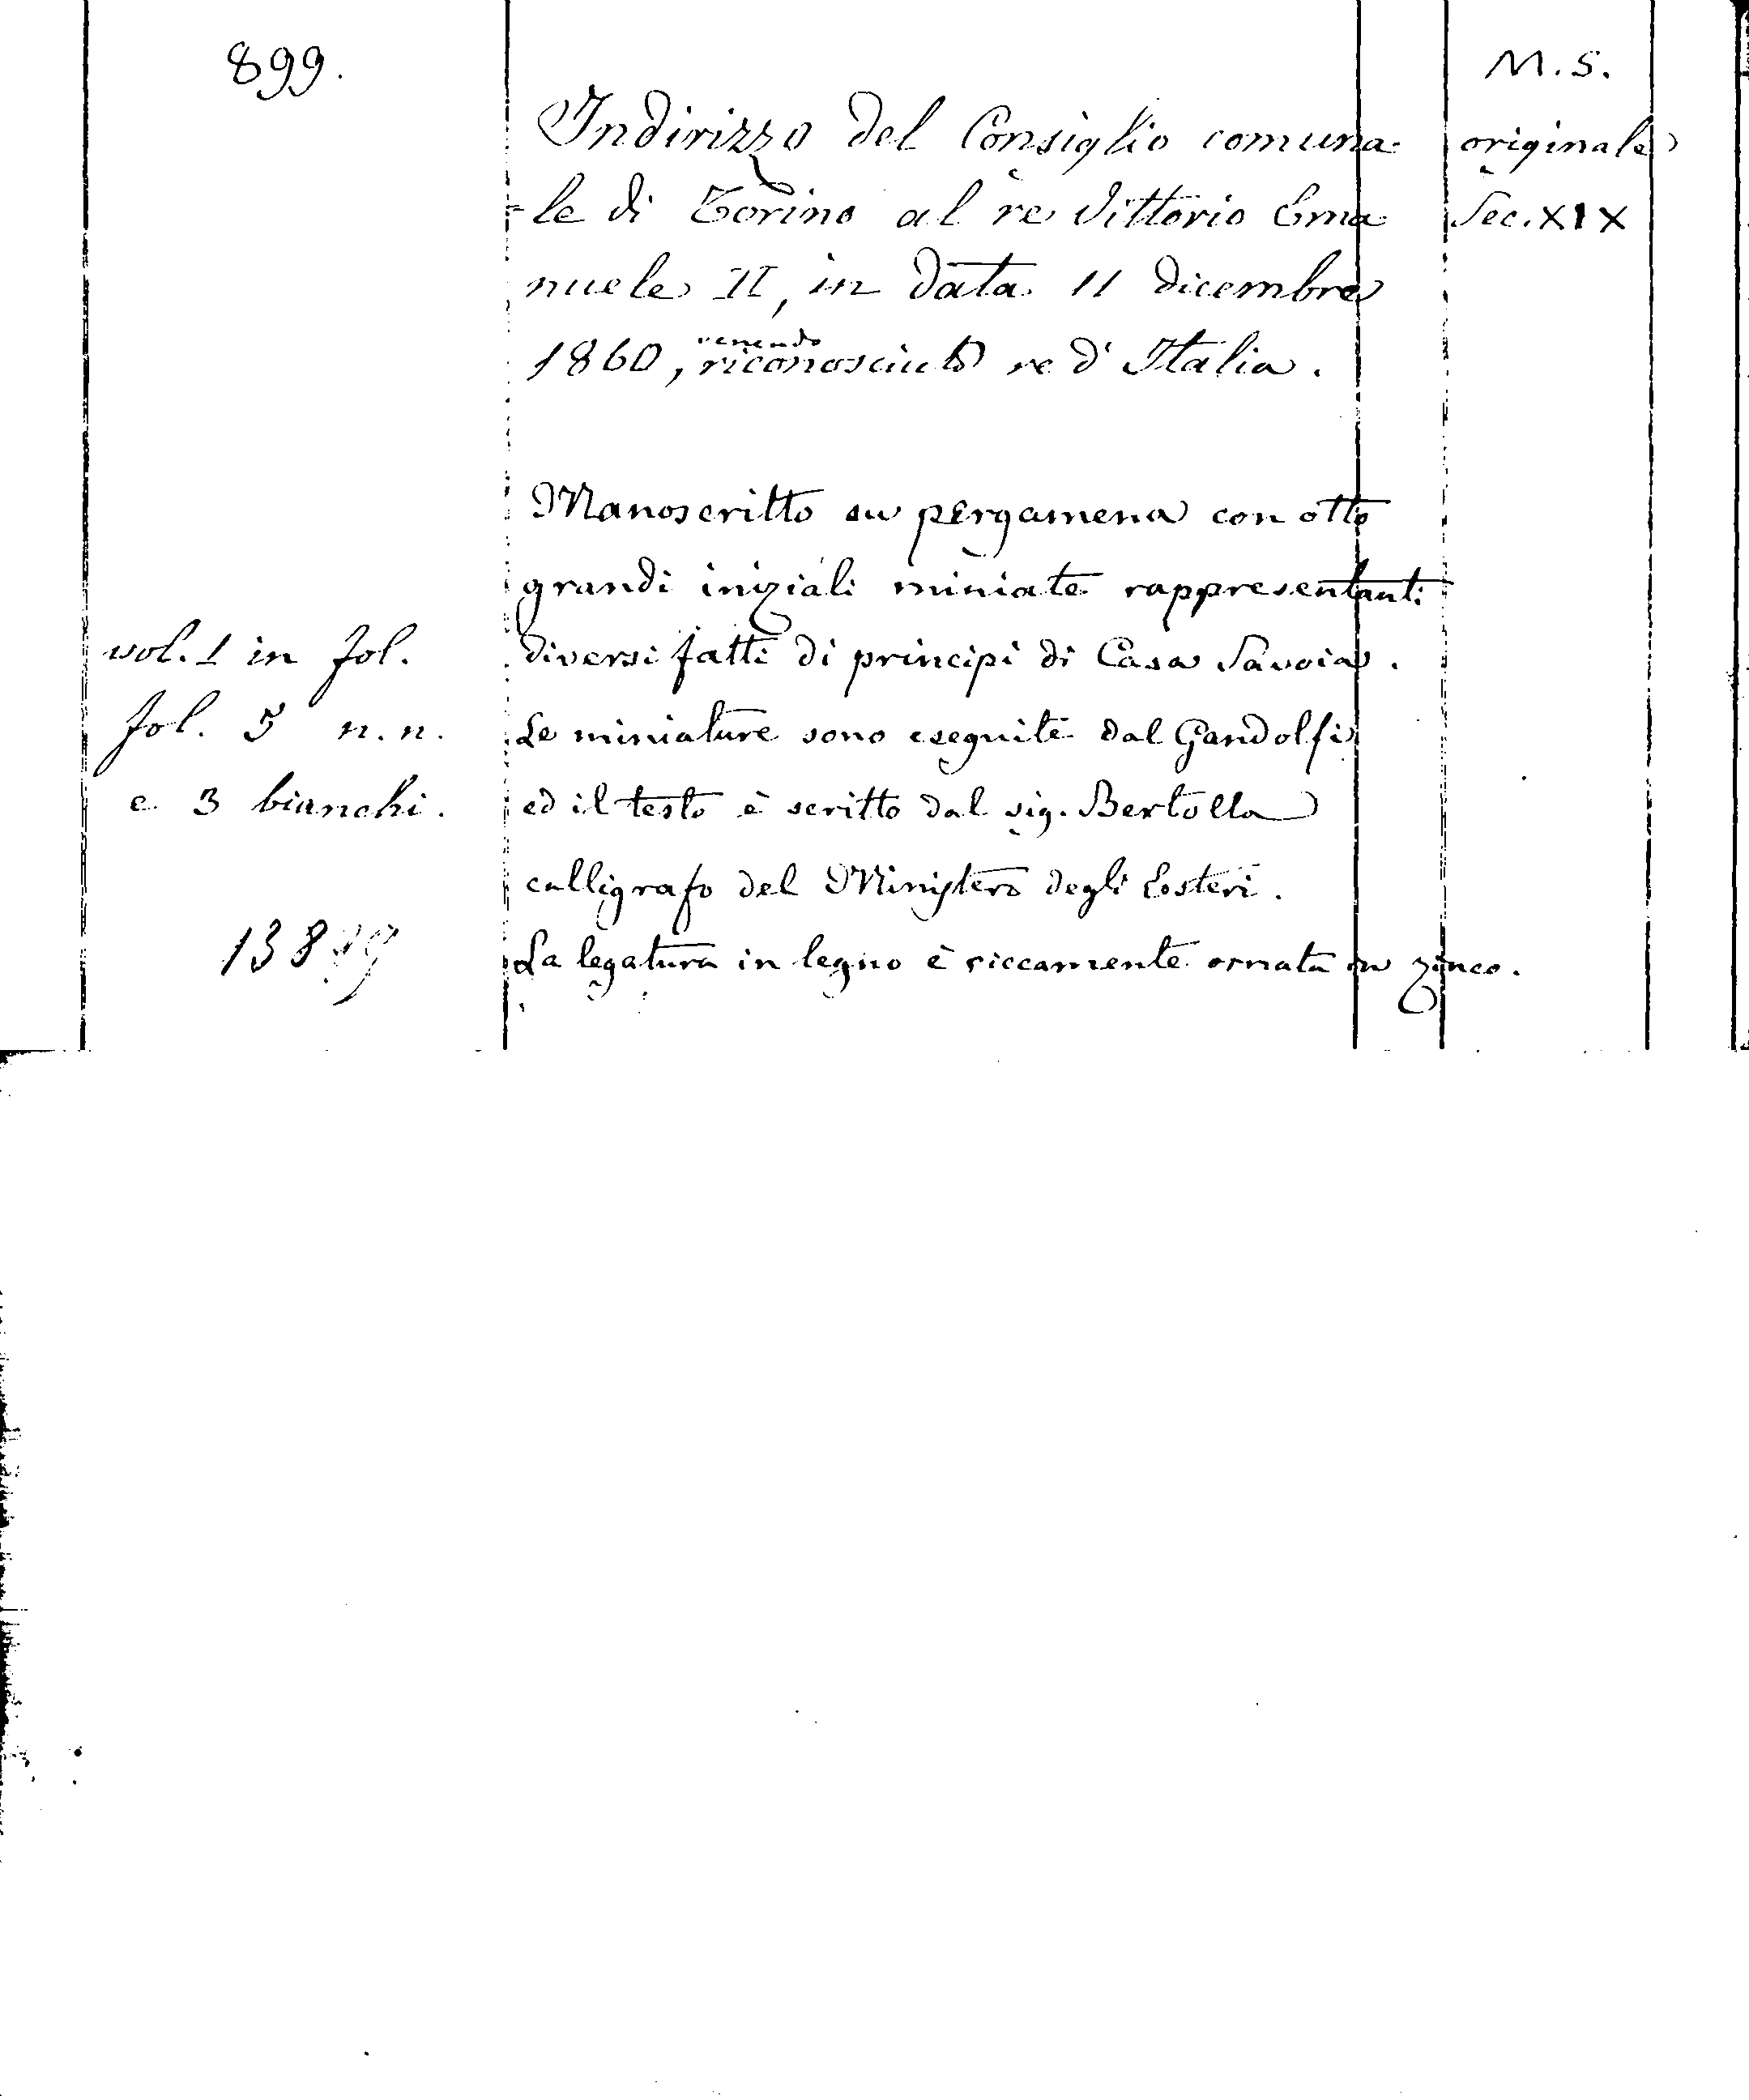 899.
M.S.
Indirizzo del Consiglio comuna
originale
-le di Torino al re Vittorio Ema
Sec. XIX
nuele II, in data 11 dicembre
venendo
1860, riconosciuto re d'Italia.
Manoscritto su pergamena con otto
grandi iniziali miniate rappresentanti
vol. 1 in fol.
diversi fatti di principi di Casa Savoia.
fol. 5 n.n.
Le miniature sono eseguite dal Gandolfi
e 3 bianchi.
ed il testo è scritto dal sig. Bertolla
calligrafo del Ministero degli Esteri.
La legatura in legno è riccamente ornata in zinco.